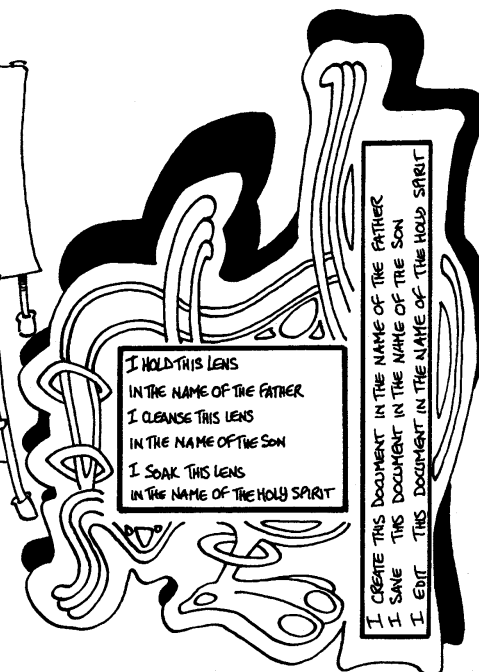 I HOLD THIS LENS
IN THE NAME OF THE FATHER
I CLEANSE THIS LENS
IN THE NAME OF THE SON
I SOAK THIS LENS
IN THE NAME OF THE HOLY SPIRIT
I CREATE THIS DOCUMENT IN THE NAME OF THE FATHER
I SAVE THIS DOCUMENT IN THE NAME OF THE SON
I EDIT THIS DOCUMENT IN THE NAME OF THE HOLD SPIRIT